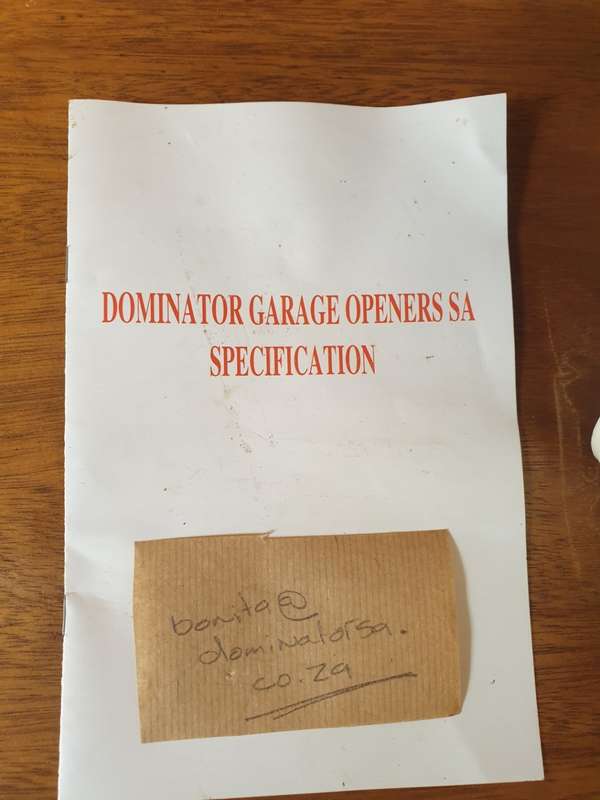 DOMINATOR GARAGE OPENERS SA
SPECIFICATION
bonita@
dominatorsa.
co.za